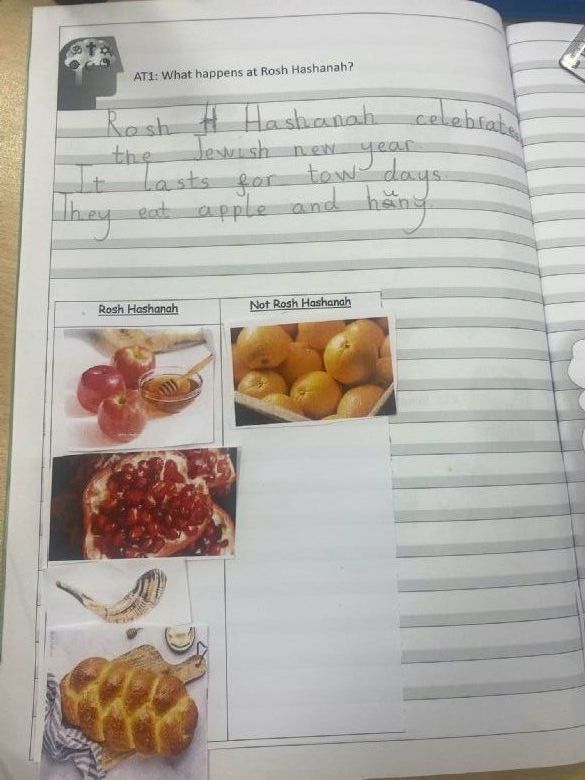 AT1: What happens at Rosh Hashanah?
Rosh H Hashanah celebrates
the Jewish new year
It lasts for tow days.
They eat apple and hüny.
Rosh Hashanah
Not Rosh Hashanah